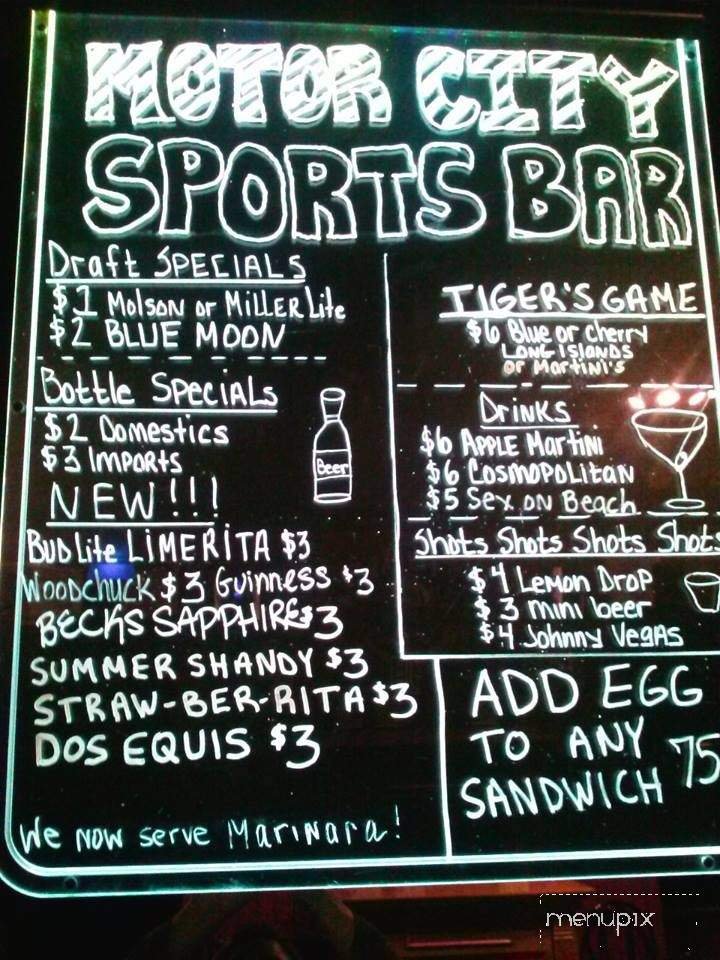 MOTOR CITY
SPORTS BAR
Draft SPECIALS
$1 Molson or MILLER Lite
$2 BLUE MOON
Bottle Specials
$2 Domestics
$3 Imports
NEW!!!
Bud Lite LIMERITA $3
Woodchuck $3 Guinness $3
BECKS SAPPHIRE $3
SUMMER SHANDY $3
STRAW-BER-RITA $3
DOS EQUIS $3
We now serve Marinara!
Beer
TIGER'S GAME
$6 Blue or Cherry
LONG ISLANDS
or Martini's
DRINKS
$6 APPLE Martini
$6 Cosmopolitan
$5 Sex on Beach
Shots Shots Shots Shots
$4 Lemon Drop
$3 mini beer
$4 Johnny Vegas
ADD EGG
TO ANY
SANDWICH 75
menupix